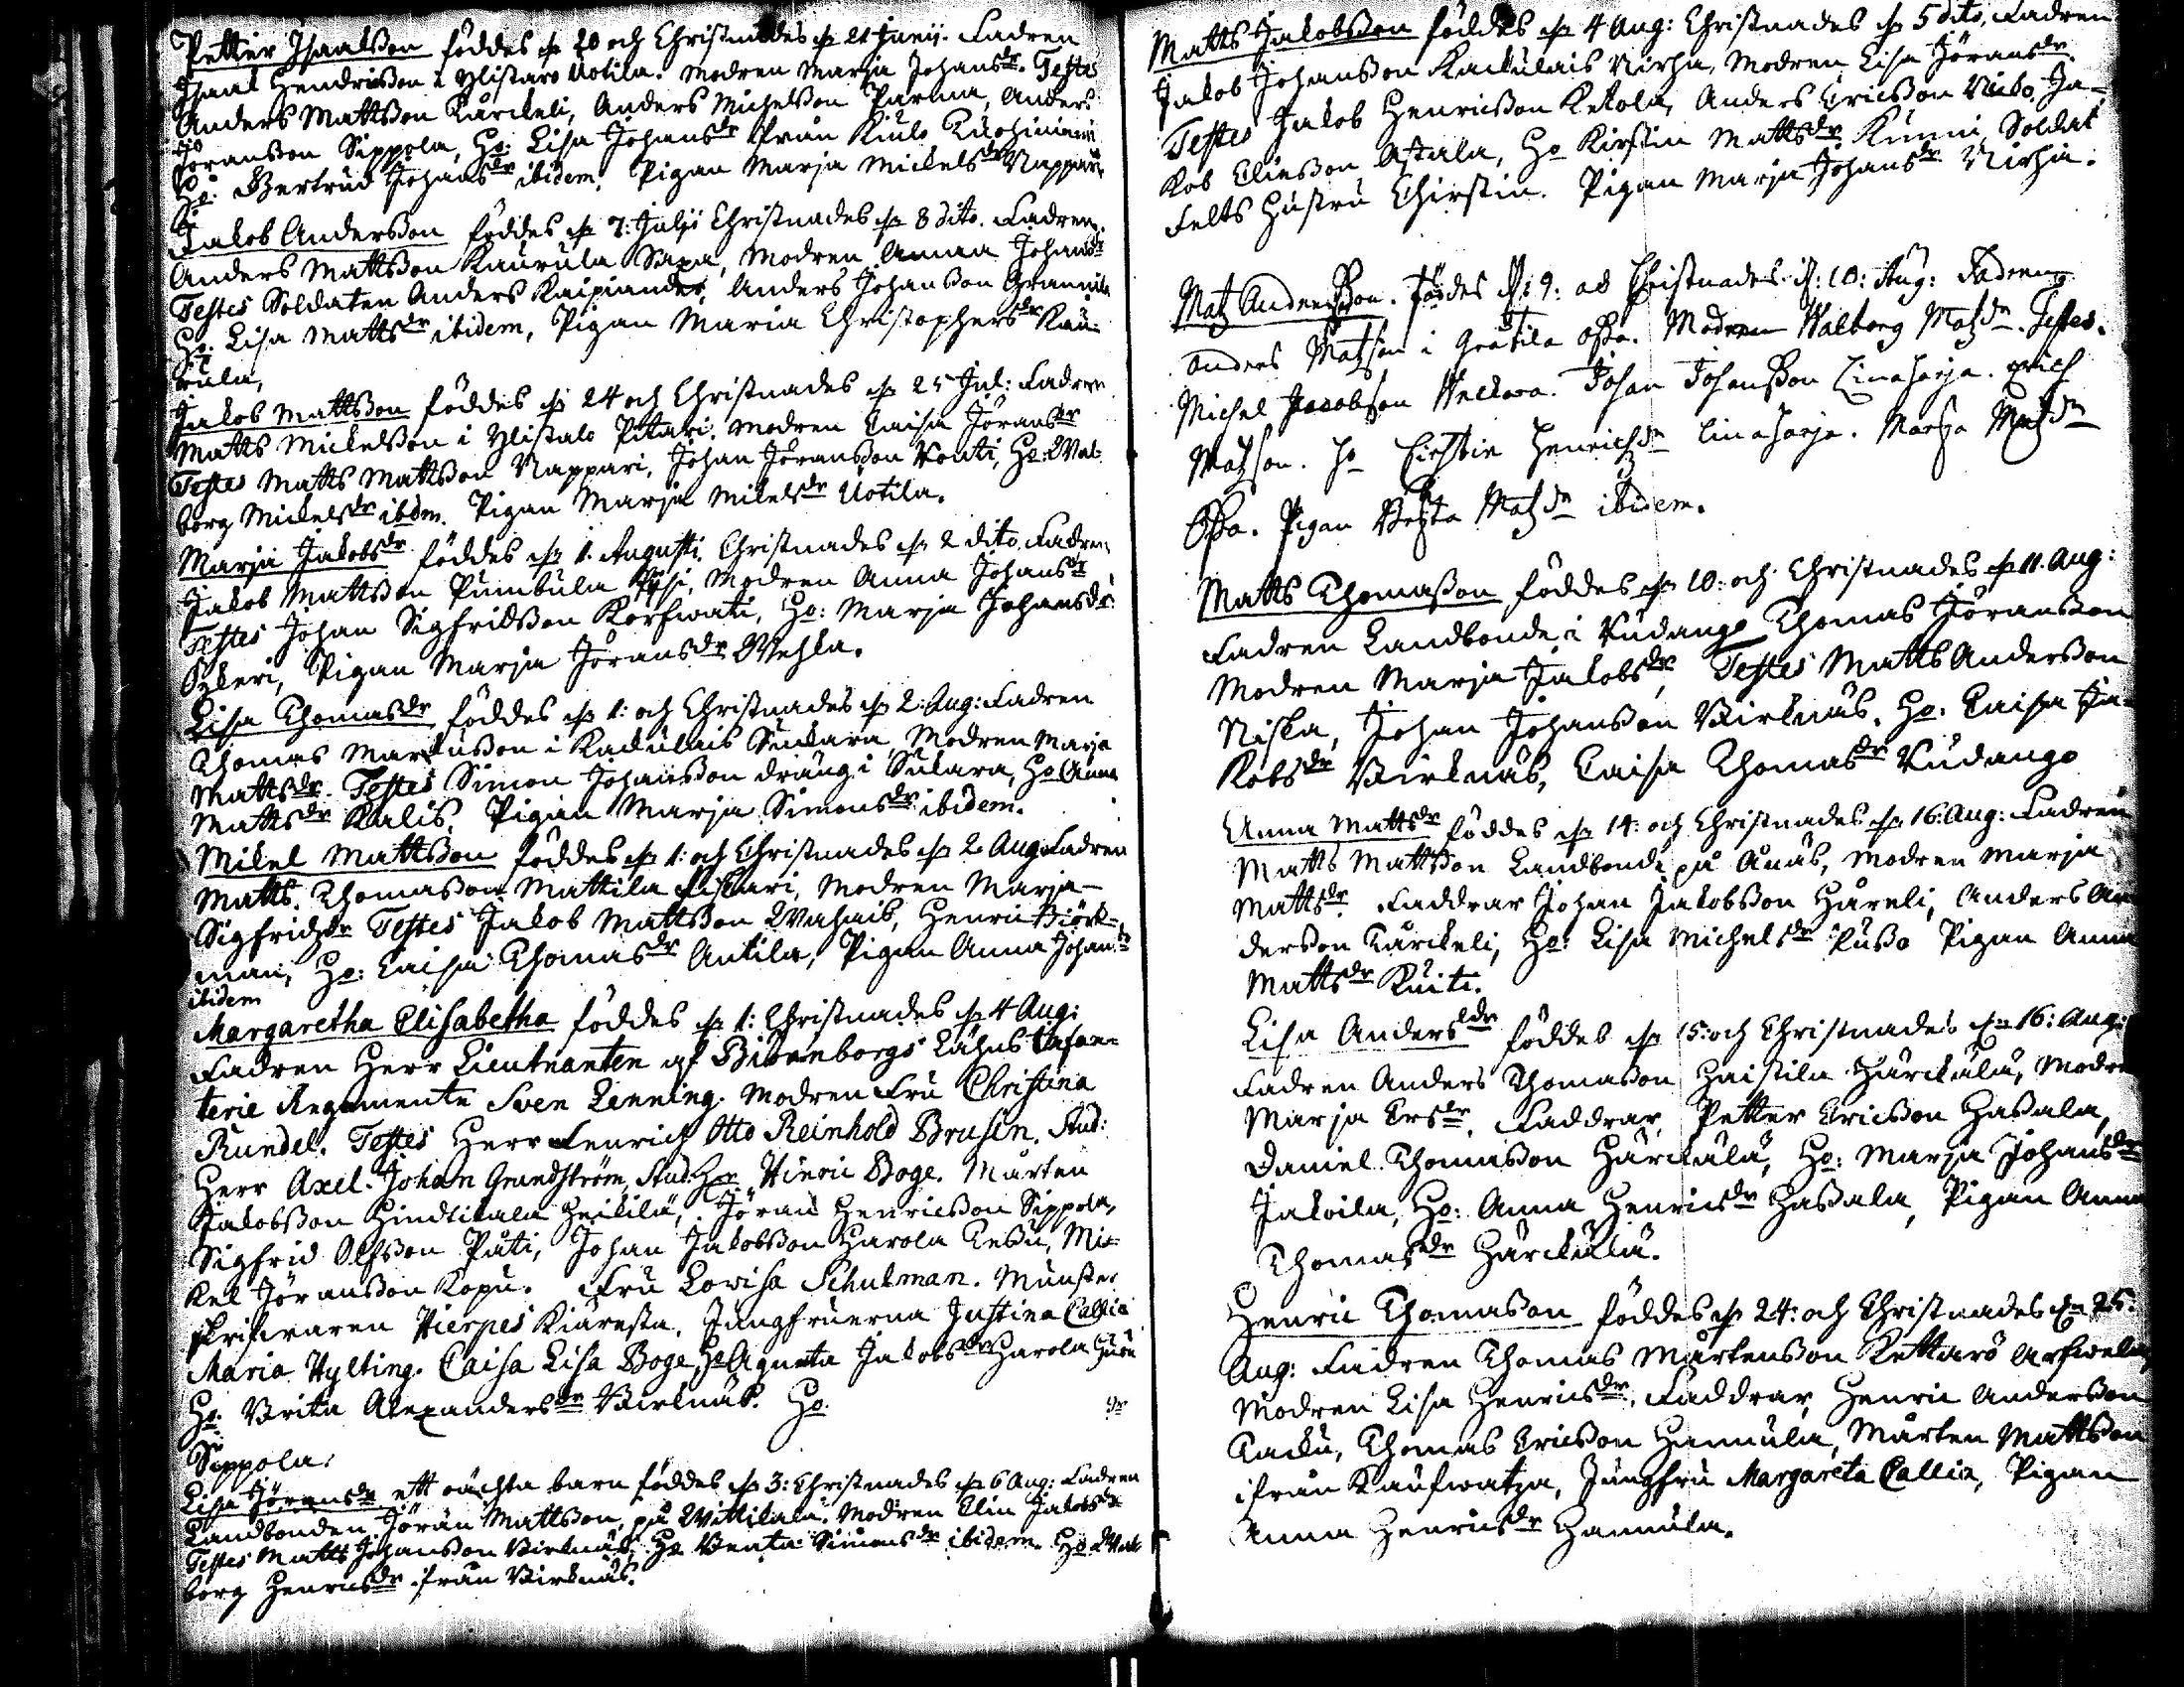 Petter Isaaksson föddes d 20 och Christnades d 21 Junii. Fadren
Isaak Hendricsson i Ylistaro Uotila. Modren Marja Johansdr. Testes
Anders Mattsson Kärckeli, Anders Michelsson Parma, Anders
Jöransson Sippola, Ho: Lisa Johansdr från Kiulo
Ho: Gertrud Johansdr ibidem. Pigan Marja Mickelsdr Nappari
Jakob Andersson föddes d 7: Julii Christnades d 8 dito. Fadren
Anders Mattsson Kaurula Saxa, Modren Anna Johansdr
Testes Soldaten Anders Anders Johansson Grannila
Ho: Lisa Mattsdr ibidem, Pigan Maria Christophersdr Kau-
rula,
Jakob Mattsson föddes d 24 och Christnades d 25 Jul: Fadren
Matts Mickelsson i Ylistalo Pitari. Modren Caisa Jöransdr
Testes Matts Mattsson Nappari, Johan Jöransson Konti, Ho: Wal-
borg Mickelsdr ibdm. Pigan Marja Mikelsdr Uotila.
Marja Jakobsdr föddes d 1. Augusti. Christnades d 2 dito. Fadren
Jakob Mattsson Pumbula Modren Anna Johansdr
Testes Johan Sigfridsson Korfwati, Ho: Marja Johansdr
Pigan Marja Jöransdr Wehka.
Lisa Thomasdr föddes d 1: och Christnades d 2: Aug: Fadren
Thomas Markusson i Kackulais Modren Marja
Mattsdr. Testes Simon Johansson dräng i Ho Anna
Mattsdr Kalis. Pigan Marja Simonsdr ibidem.
Mikel Mattsson föddes d 1: och Christnades d 2 Aug: Fadren
Matts Thomasson Mattila Fiskari, Modren Marja
Sigfridzdr Testes Jakob Mattsson Wahais, Henric Björk-
man, Ho: Caisa Thomasdr Antila, Pigan Anna Johansdr
ibidem
Margaretha Elisabetha föddes d 1: Christnades d 4 Aug:
Fadren Herr Lieutnanten af Biörneborgs Lähns Infan-
terie Regemente Sven Lenning. Modren Fru Christina
Rundel. Testes Herr Fenrich Otto Reinhold Brusin. Stud:
Herr Axel Johan Grundström, Stud. Hr Hinric Boge. Mårten
Jakobsson Hindtikala Heikilä, Jöran Henricsson Sippola,
Sigfrid Olfsson Päti, Johan Jakobsson Harola Mi-
kel Jöransson Kopu. Fru Lowisa Schulman. Mönster
skrifwaren Hierpes Kiäresta, Jungfruerna Justina Callia
Maria Hylting. Caisa Lisa Boge, Ho Agneta Jakobsdr Harola
Ho: Brita Alexandersdr Birknäs. Ho. dr
Sippola.
Lisa Jöransdr ett oächta barn föddes d 3: Christnades d 6 Aug: Fadren
Landbonden Jöran Mattsson, på Wittikala. Modren Elin Jakobsdr
Testes Matts Johansson Birknäs, Ho Beata Simonsdr ibidem. Ho Wal-
borg Henricsdr från Birknäs.
Matts Jakobsson föddes d 4 Aug: Christnades d 5 dito, Fadren
Jakob Johansson Kackulais Nirhu, Modren Lisa Jöransdr.
Testes Jakob Henricsson Kekola, Anders Ericsson Ja-
kob Eliesson Astala, Ho Kirstin Mattsdr Kunni, Soldat
Felts Hustru Chirstin. Pigan Marja Johansdr Nirhu.
Matz Andersson. föddes d: 9: och Christnades d: 10: Aug: Fadren
Anders Matzson i Gratila Åssa. Modren Walborg Matzdr. Testes.
Michel Jacobson Weckara. Johan Johansson Linaharja. Erich
Matzson. Ho Kirstin Henrichzdr Linaharja. Marja Matzdr
Åssa. Pigan Beata Matzdr ibidem.
Matts Thomasson föddes d 10: och Christnades d 11. Aug:
Fadren Landbonde i Rudango Thomas Jöransson
Modren Marja Jakobsdr, Testes Matts Andersson
Niska, Johan Johansson Birknäs. Ho: Caisa Ja-
kobsdr Birknäs, Caisa Thomasdr Rudango
Anna Mattsdr föddes d 14: och Christnades d 16: Aug: Fadren
Matts Mattsson Landbonde på Ånäs, Modren Marja
Mattsdr. Faddrar Johan Jakobsson Häreli, Anders An-
dersson Kärckeli, Ho: Lisa Michelsdr Pusso Pigan Anna
Mattsdr Knite.
Lisa Andersdr föddes d 15: och Christnades d 16: Aug:
Fadren Anders Thomasson Haistila Härckälä, Modren
Marja Ersdr. Faddrar Petter Ericsson Hassala,
Daniel Thomasson Härckälä, Ho: Marja Johansdr
Jakoila, Ho: Anna Henricsdr Hassala, Pigan Anna
Thomasdr Härckälä.
Henric Thomasson föddes d 24: och Christnades d 25:
Aug: Fadren Thomas Mårtensson Kettarö Arfwela,
Modren Lisa Henricsdr. Faddrar, Henric Andersson
Tacku, Thomas Ericsson Hannula, Mårten Mattsson
ifrån Kaufwatza, Jungfru Margareta Callia, Pigan
Anna Henricsdr Hannula.